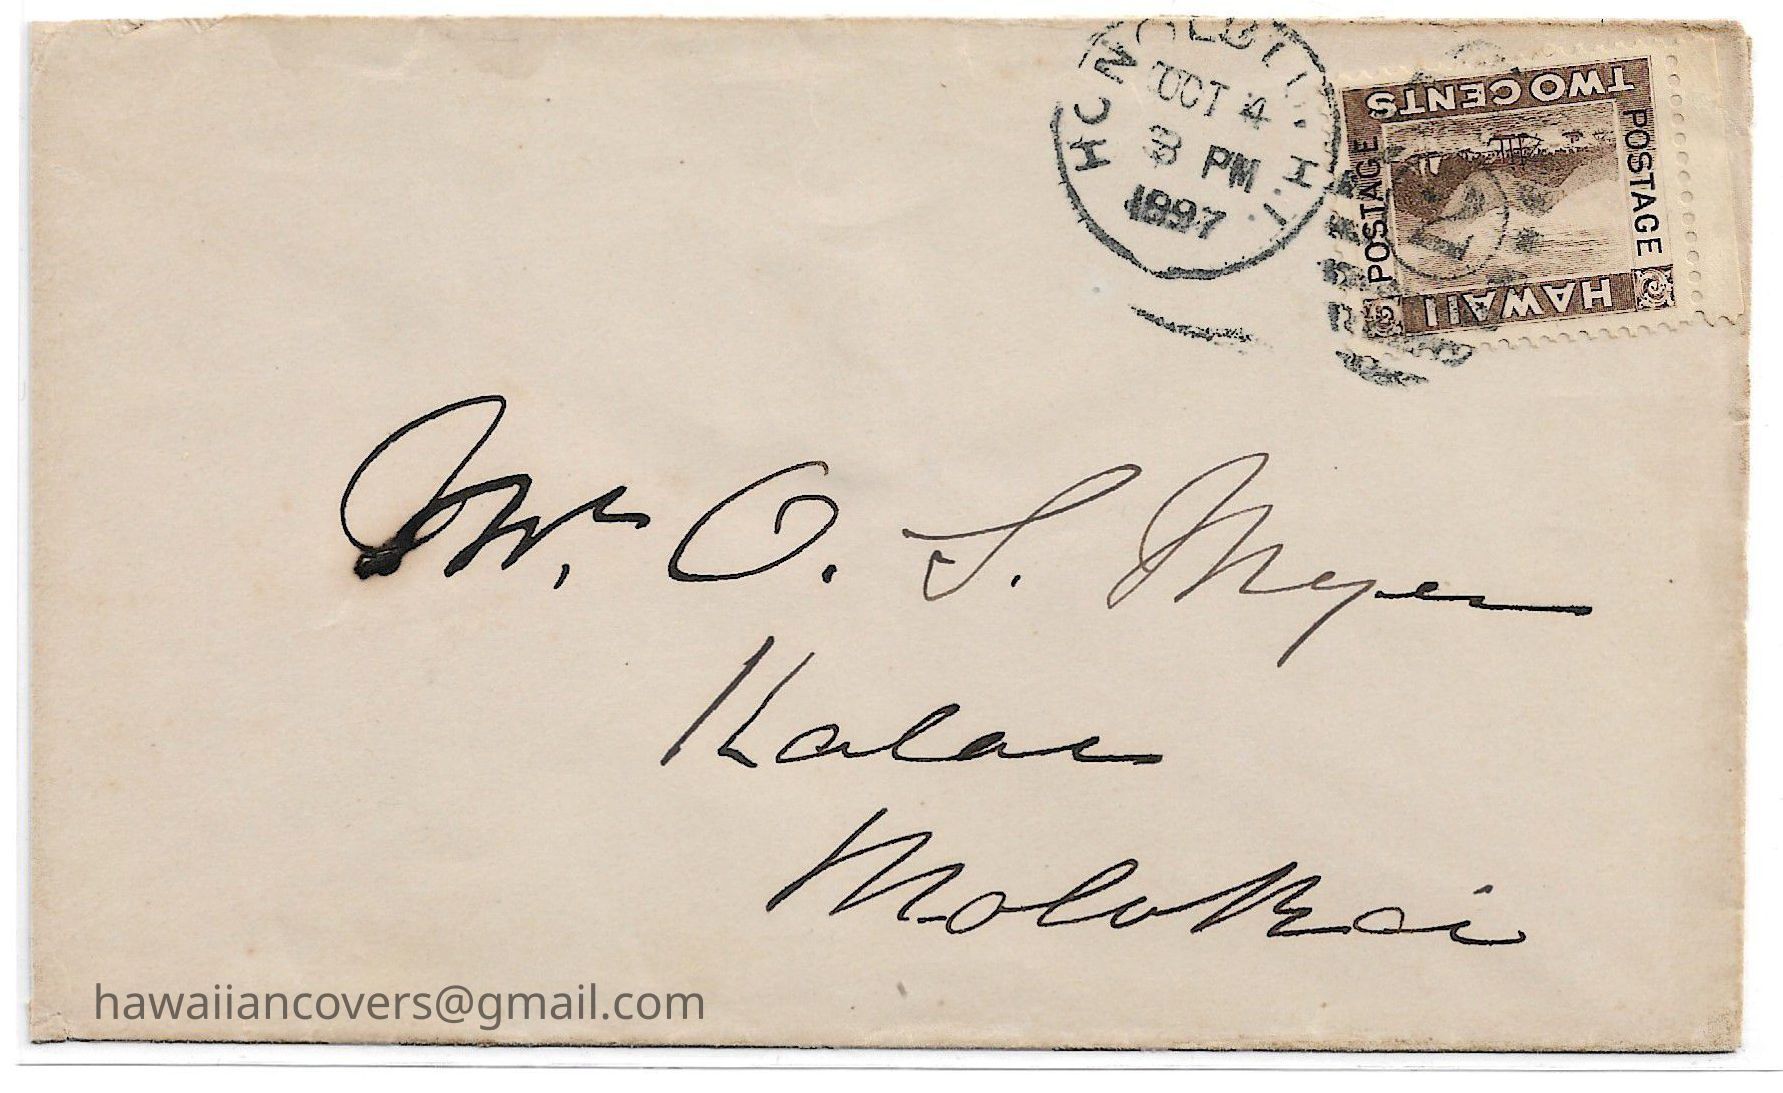 HONOLULU H.I.
OCT 4
3 PM
1897
TWO CENTS
POSTAGE
POSTAGE
HAWAII
Mr. O. S. Meyer
Kalae
Molokai
hawaiiancovers@gmail.com